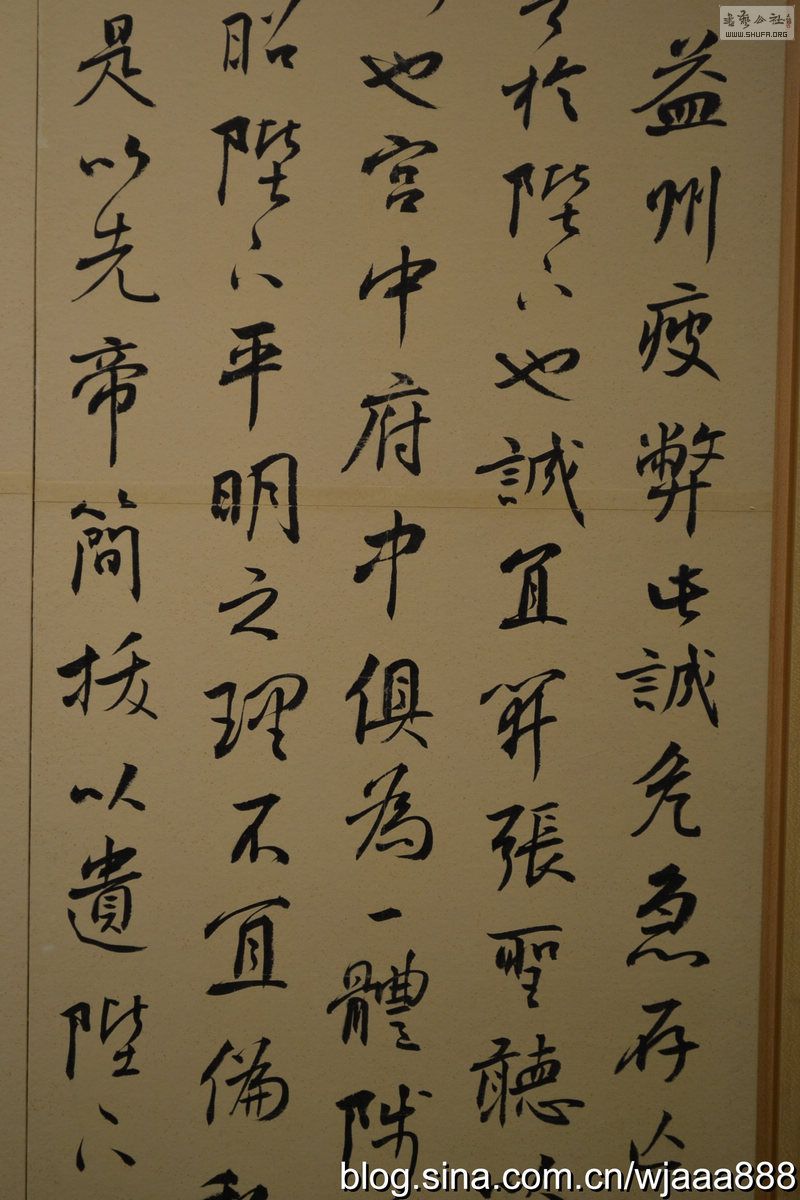 益州疲弊此誠危急存亡
於陛下也誠宜開張聖聽以
也宮中府中俱為一體陟
昭陛下平明之理不宜偏
是以先帝簡拔以遺陛下
書藝公社
WWW.SHUFA.ORG
blog.sina.com.cn/wjaaa888